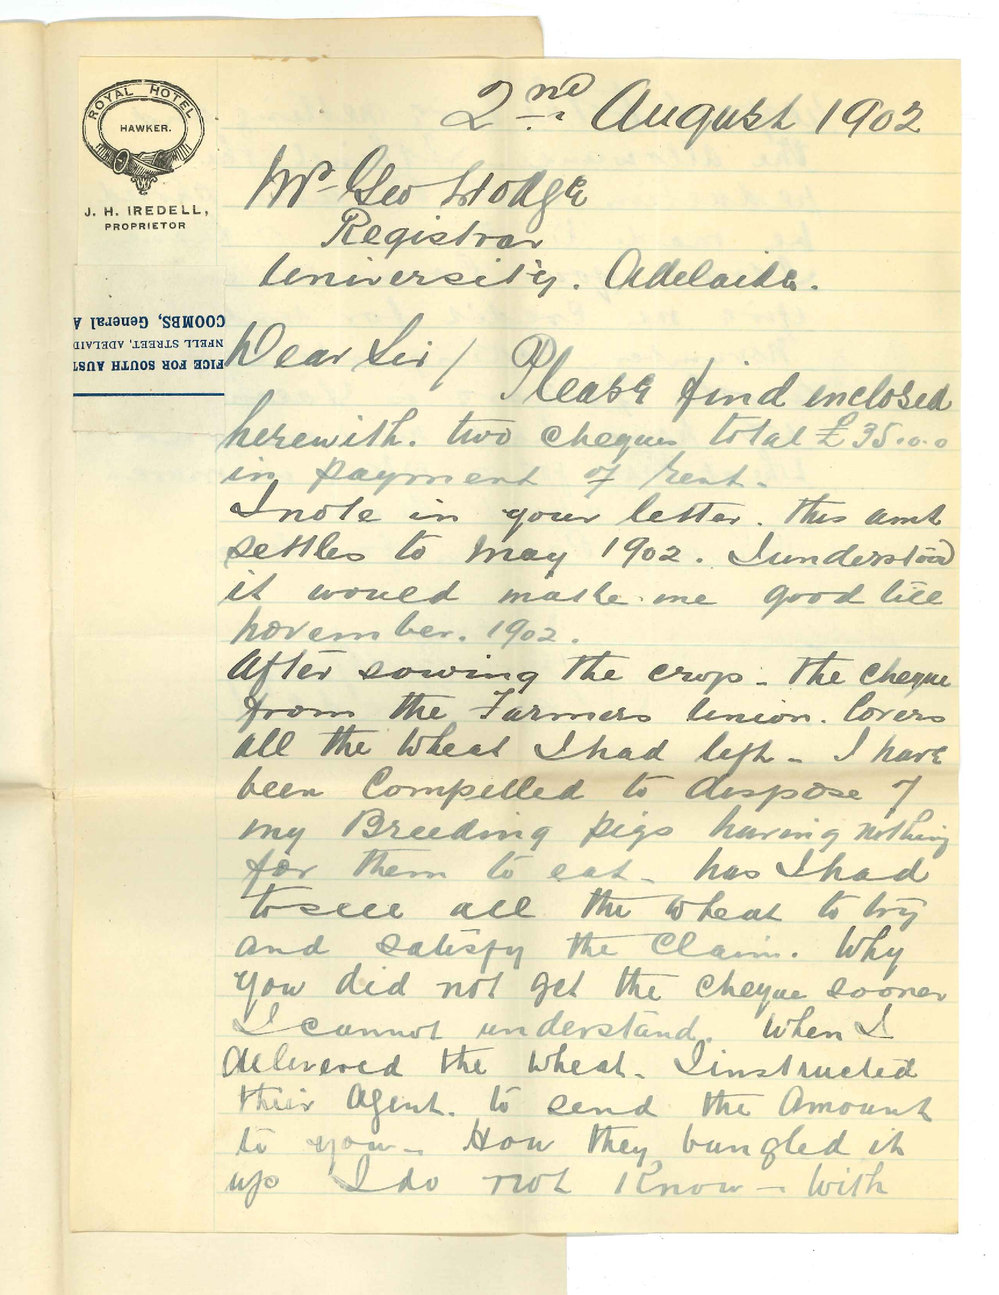 ROYAL HOTEL
HAWKER.
J. H. IREDELL,
PROPRIETOR
FICE FOR SOUTH AUST
NFELL STREET, ADELAID
COOMBS, General A
2nd August 1902
Mr Geo Hodge
Registrar
University. Adelaide.
Dear Sir / Please find enclosed
herewith. two cheques total £35.0.0
in payment of Rent.
I note in your letter. this amt
settles to May 1902. I understood
it would make me good till
November. 1902.
After sowing the crop - the cheque
from the Farmers Union. Covers
all the Wheat I had left - I have
been Compelled to dispose of
my Breeding pigs having nothing
for them to eat - has I had
to sell all the wheat to try
and satisfy the Claim. Why
you did not get the cheque sooner
I cannot understand. When I
delivered the wheat - I instructed
their Agent. to send the Amount
to you - How they bungled it
up I do not Know - With